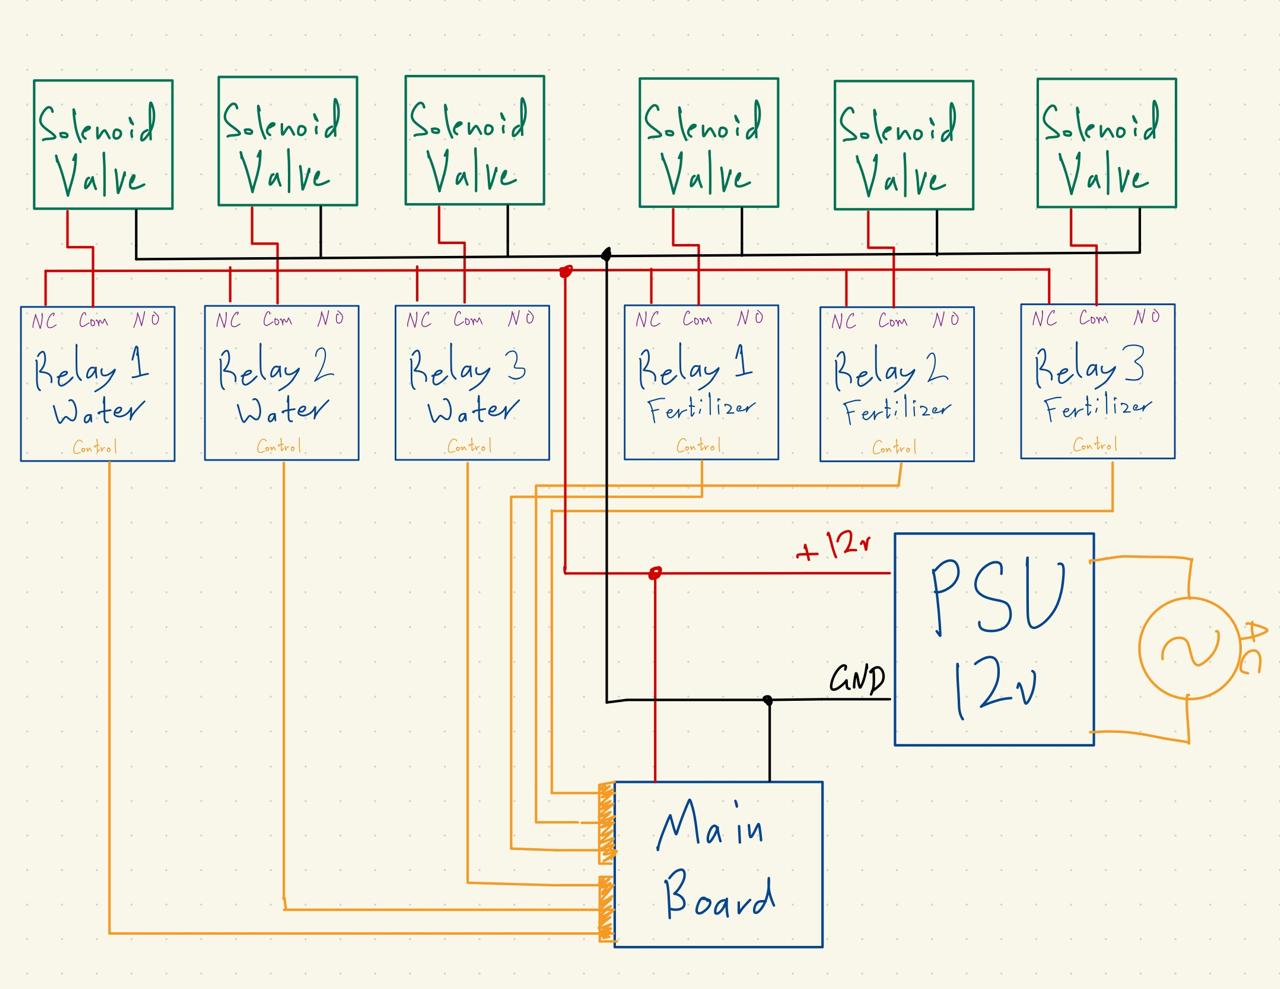 Solenoid
Valve
Solenoid
Valve
Solenoid
Valve
Solenoid
Valve
Solenoid
Valve
Solenoid
Valve
NC Com NO
Relay 1
Water
Control
NC Com NO
Relay 2
Water
Control
NC Com NO
Relay 3
Water
Control
NC Com NO
Relay 1
Fertilizer
Control
NC Com NO
Relay 2
Fertilizer
Control
NC Com NO
Relay 3
Fertilizer
Control
+12v
GND
PSU
12v
AC
Main
Board